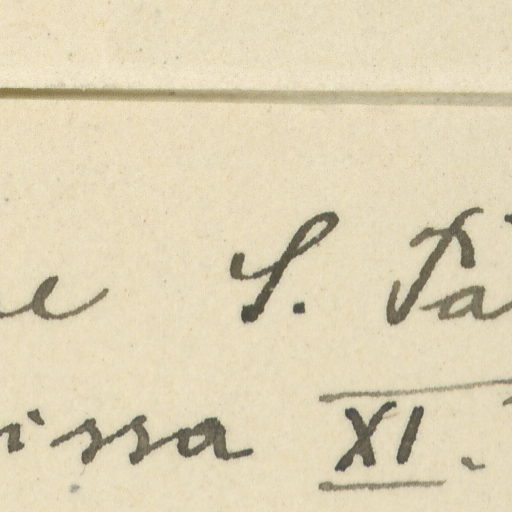 S. Pa
issa XI.